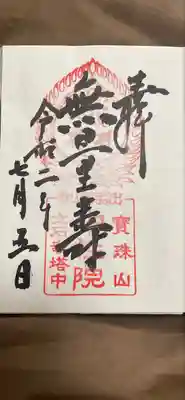 奉拝
無量寿
令和二年
七月五日
寶珠山
院
寺塔中